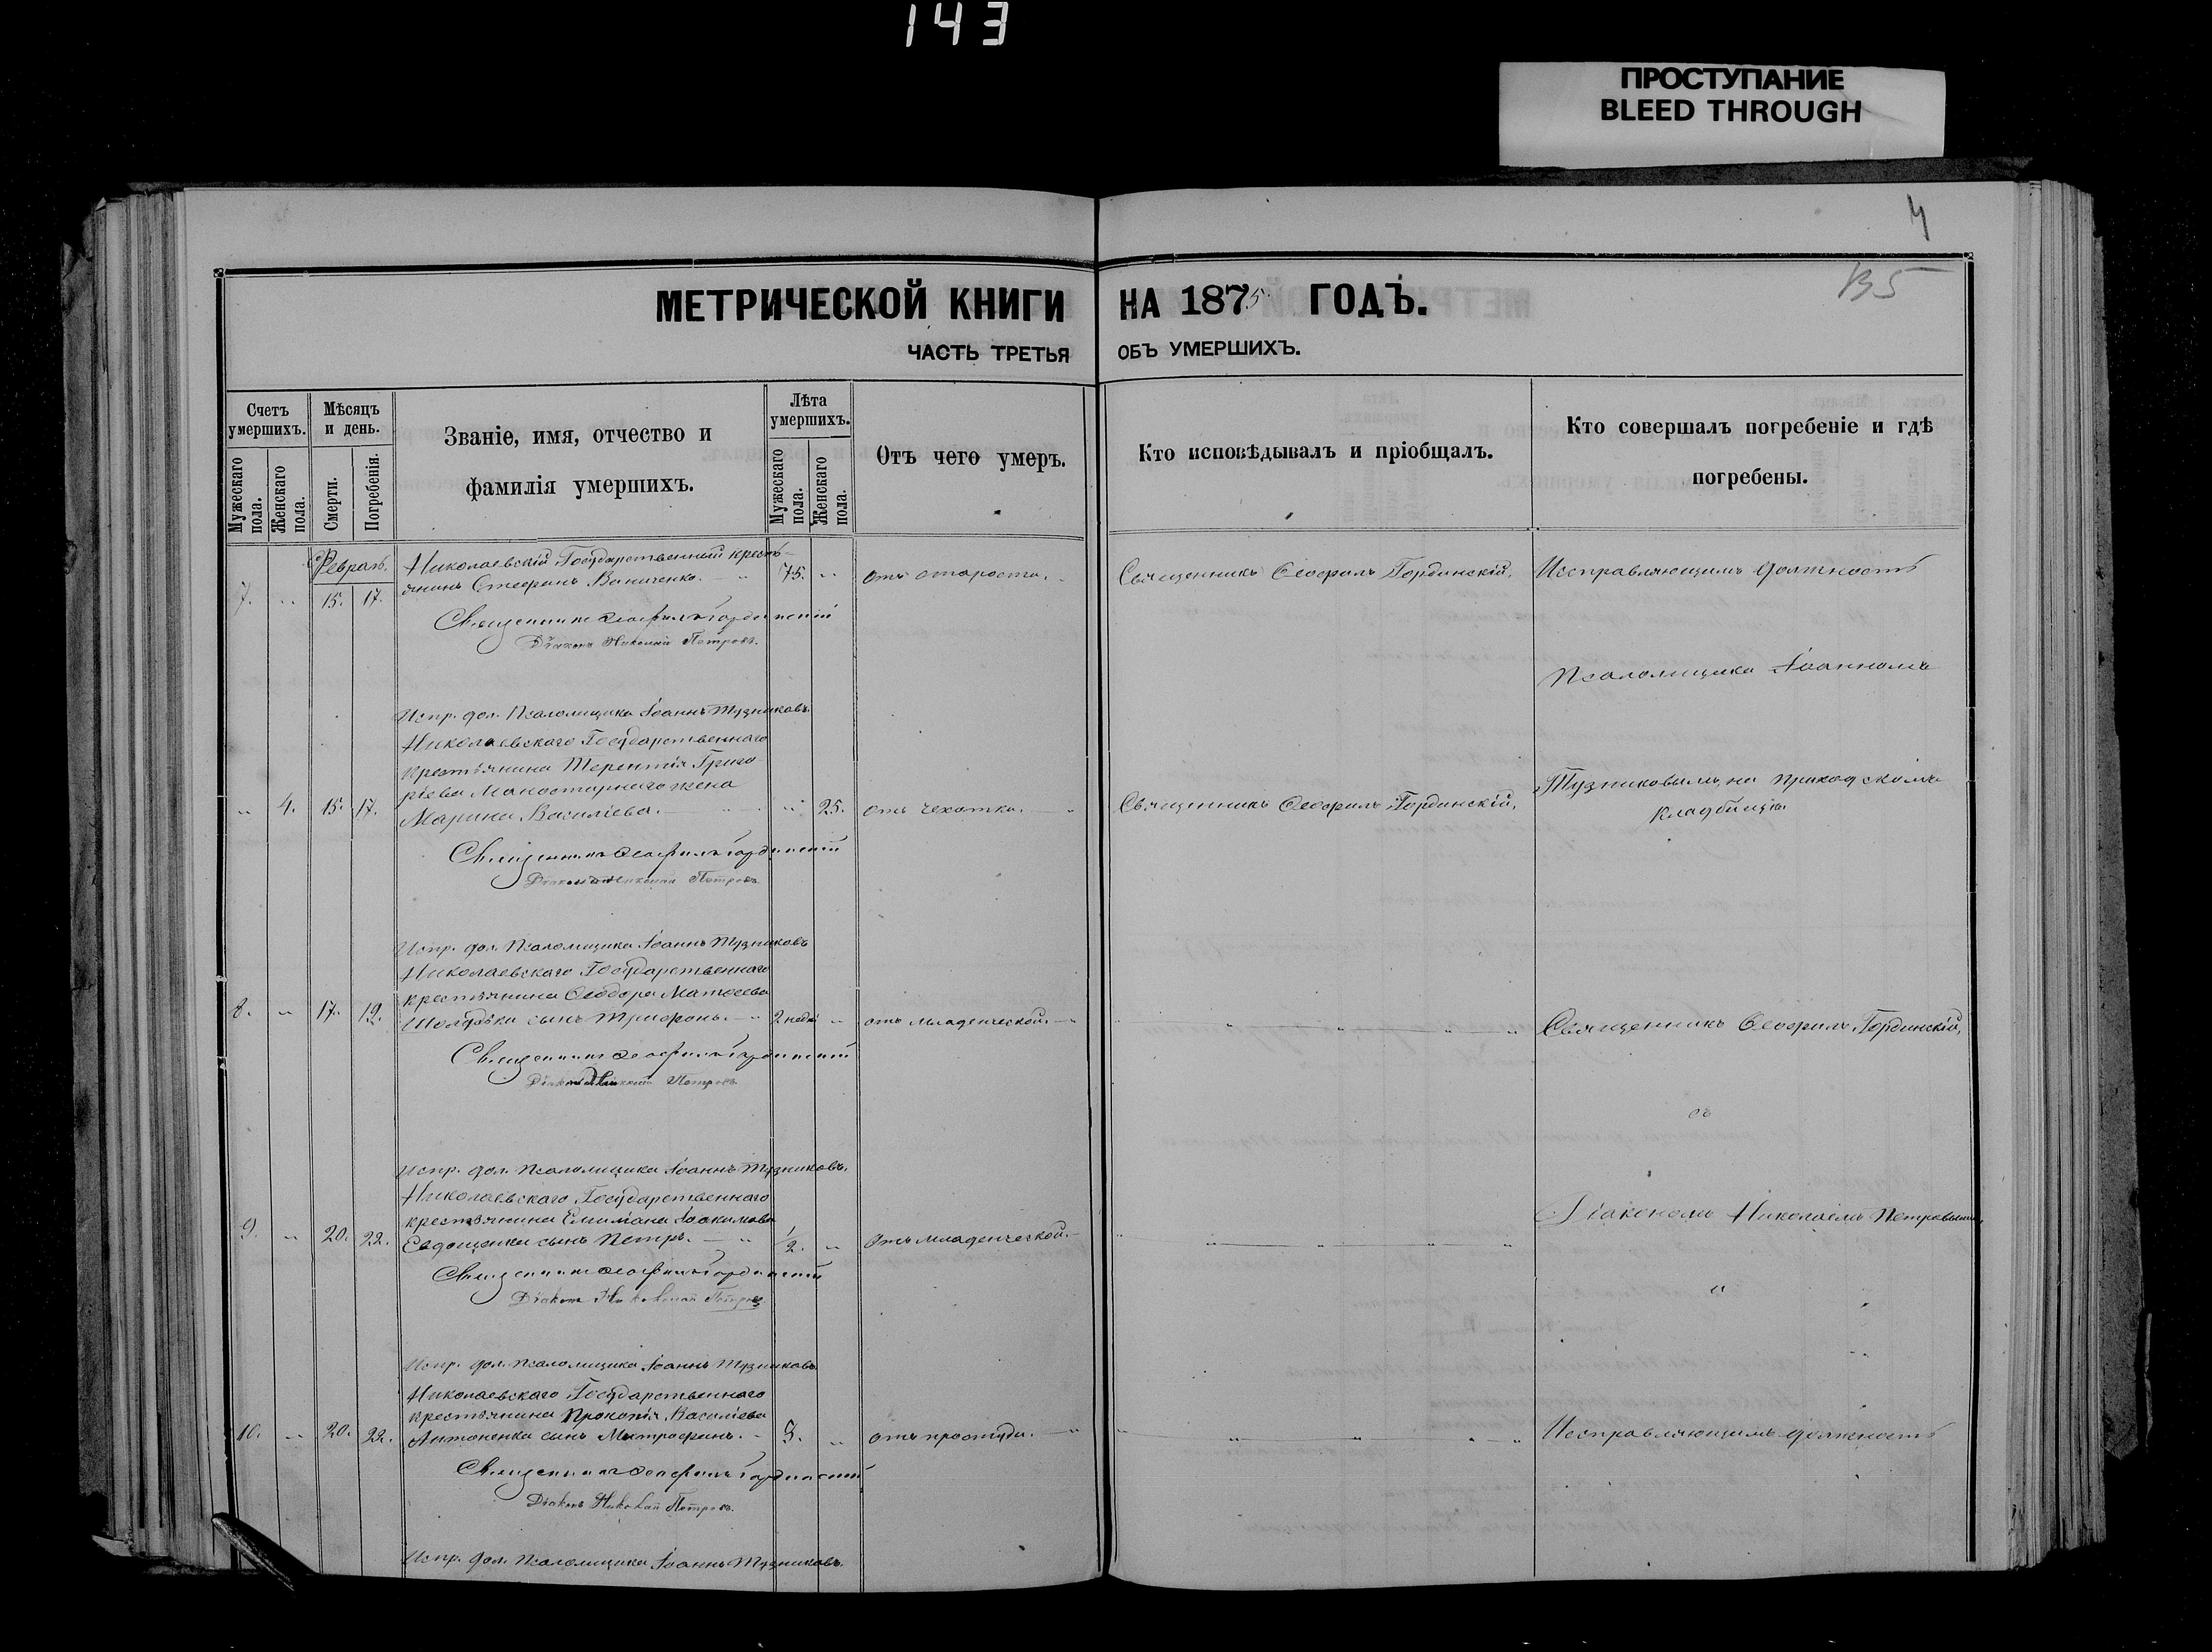 143
ПРОСТУПАНИЕ
BLEED THROUGH
4
135
МЕТРИЧЕСКОЙ КНИГИ НА 1875 ГОДЪ.
ЧАСТЬ ТРЕТЬЯ ОБЪ УМЕРШИХЪ.
Счетъ умершихъ.
Мужескаго пола.
Женскаго пола.
Мѣсяцъ и день.
Смерти.
Погребенія.
Званіе, имя, отчество и
фамилія умершихъ.
Лѣта умершихъ.
Мужескаго пола.
Женскаго пола.
Отъ чего умеръ.
Кто исповѣдывалъ и пріобщалъ.
Кто совершалъ погребеніе и гдѣ
погребены.
Февраль.
Николаевскій Государственный кресть-
7. „ 15. 17. янинъ Стефанъ Ваниченко. — „ 75. „ отъ старости. Священникъ Ѳеофилъ Гординскій. Исправляющимъ должность
Священникъ Ѳеофилъ Гординскій
Діаконъ Николай Петровъ.
Псаломщика Іоанномъ
Испр. дол. Псаломщика Іоаннъ Тузниковъ
Николаевскаго Государственнаго
крестьянина Терентія Григо-
ріева Монастырнаго жена
Тузниковымъ, на приходскомъ
кладбищѣ.
„ 4. 15. 17. Марина Василіева. „ 25. отъ чахотки. „ Священникъ Ѳеофилъ Гординскій.
Священникъ Ѳеофилъ Гординскій
Діаконъ Николай Петровъ
Испр. дол. Псаломщика Іоаннъ Тузниковъ
Николаевскаго Государственнаго
крестьянина Ѳеодора Матѳеева
8. „ 17. 19. сынъ Трифонъ. — „ 2 недѣ „ отъ младенческой. — „ Священникъ Ѳеофилъ Гординскій,
Священникъ Ѳеофилъ Гординскій
Діаконъ Николай Петровъ
съ
Испр. дол. Псаломщика Іоаннъ Тузниковъ.
Николаевскаго Государственнаго
крестьянина Емиліана Іоакимова
Діакономъ Николаемъ Петровымъ.
9. „ 20. 22. Евдощенка сынъ Петръ. — „ 1/2. „ Отъ младенческой. —
Священникъ Ѳеофилъ Гординскій
Діаконъ Николай Петровъ
„
Испр. дол. Псаломщика Іоаннъ Тузниковъ
Николаевскаго Государственнаго
крестьянина Прокопія Василіева
10. „ 20. 22. Антоненка сынъ Митрофанъ. „ 3. „ отъ простуды. — „ Исправляющимъ должность
Священникъ Ѳеофилъ Гординскій
Діаконъ Николай Петровъ.
Испр. дол. Псаломщика Іоаннъ Тузниковъ.